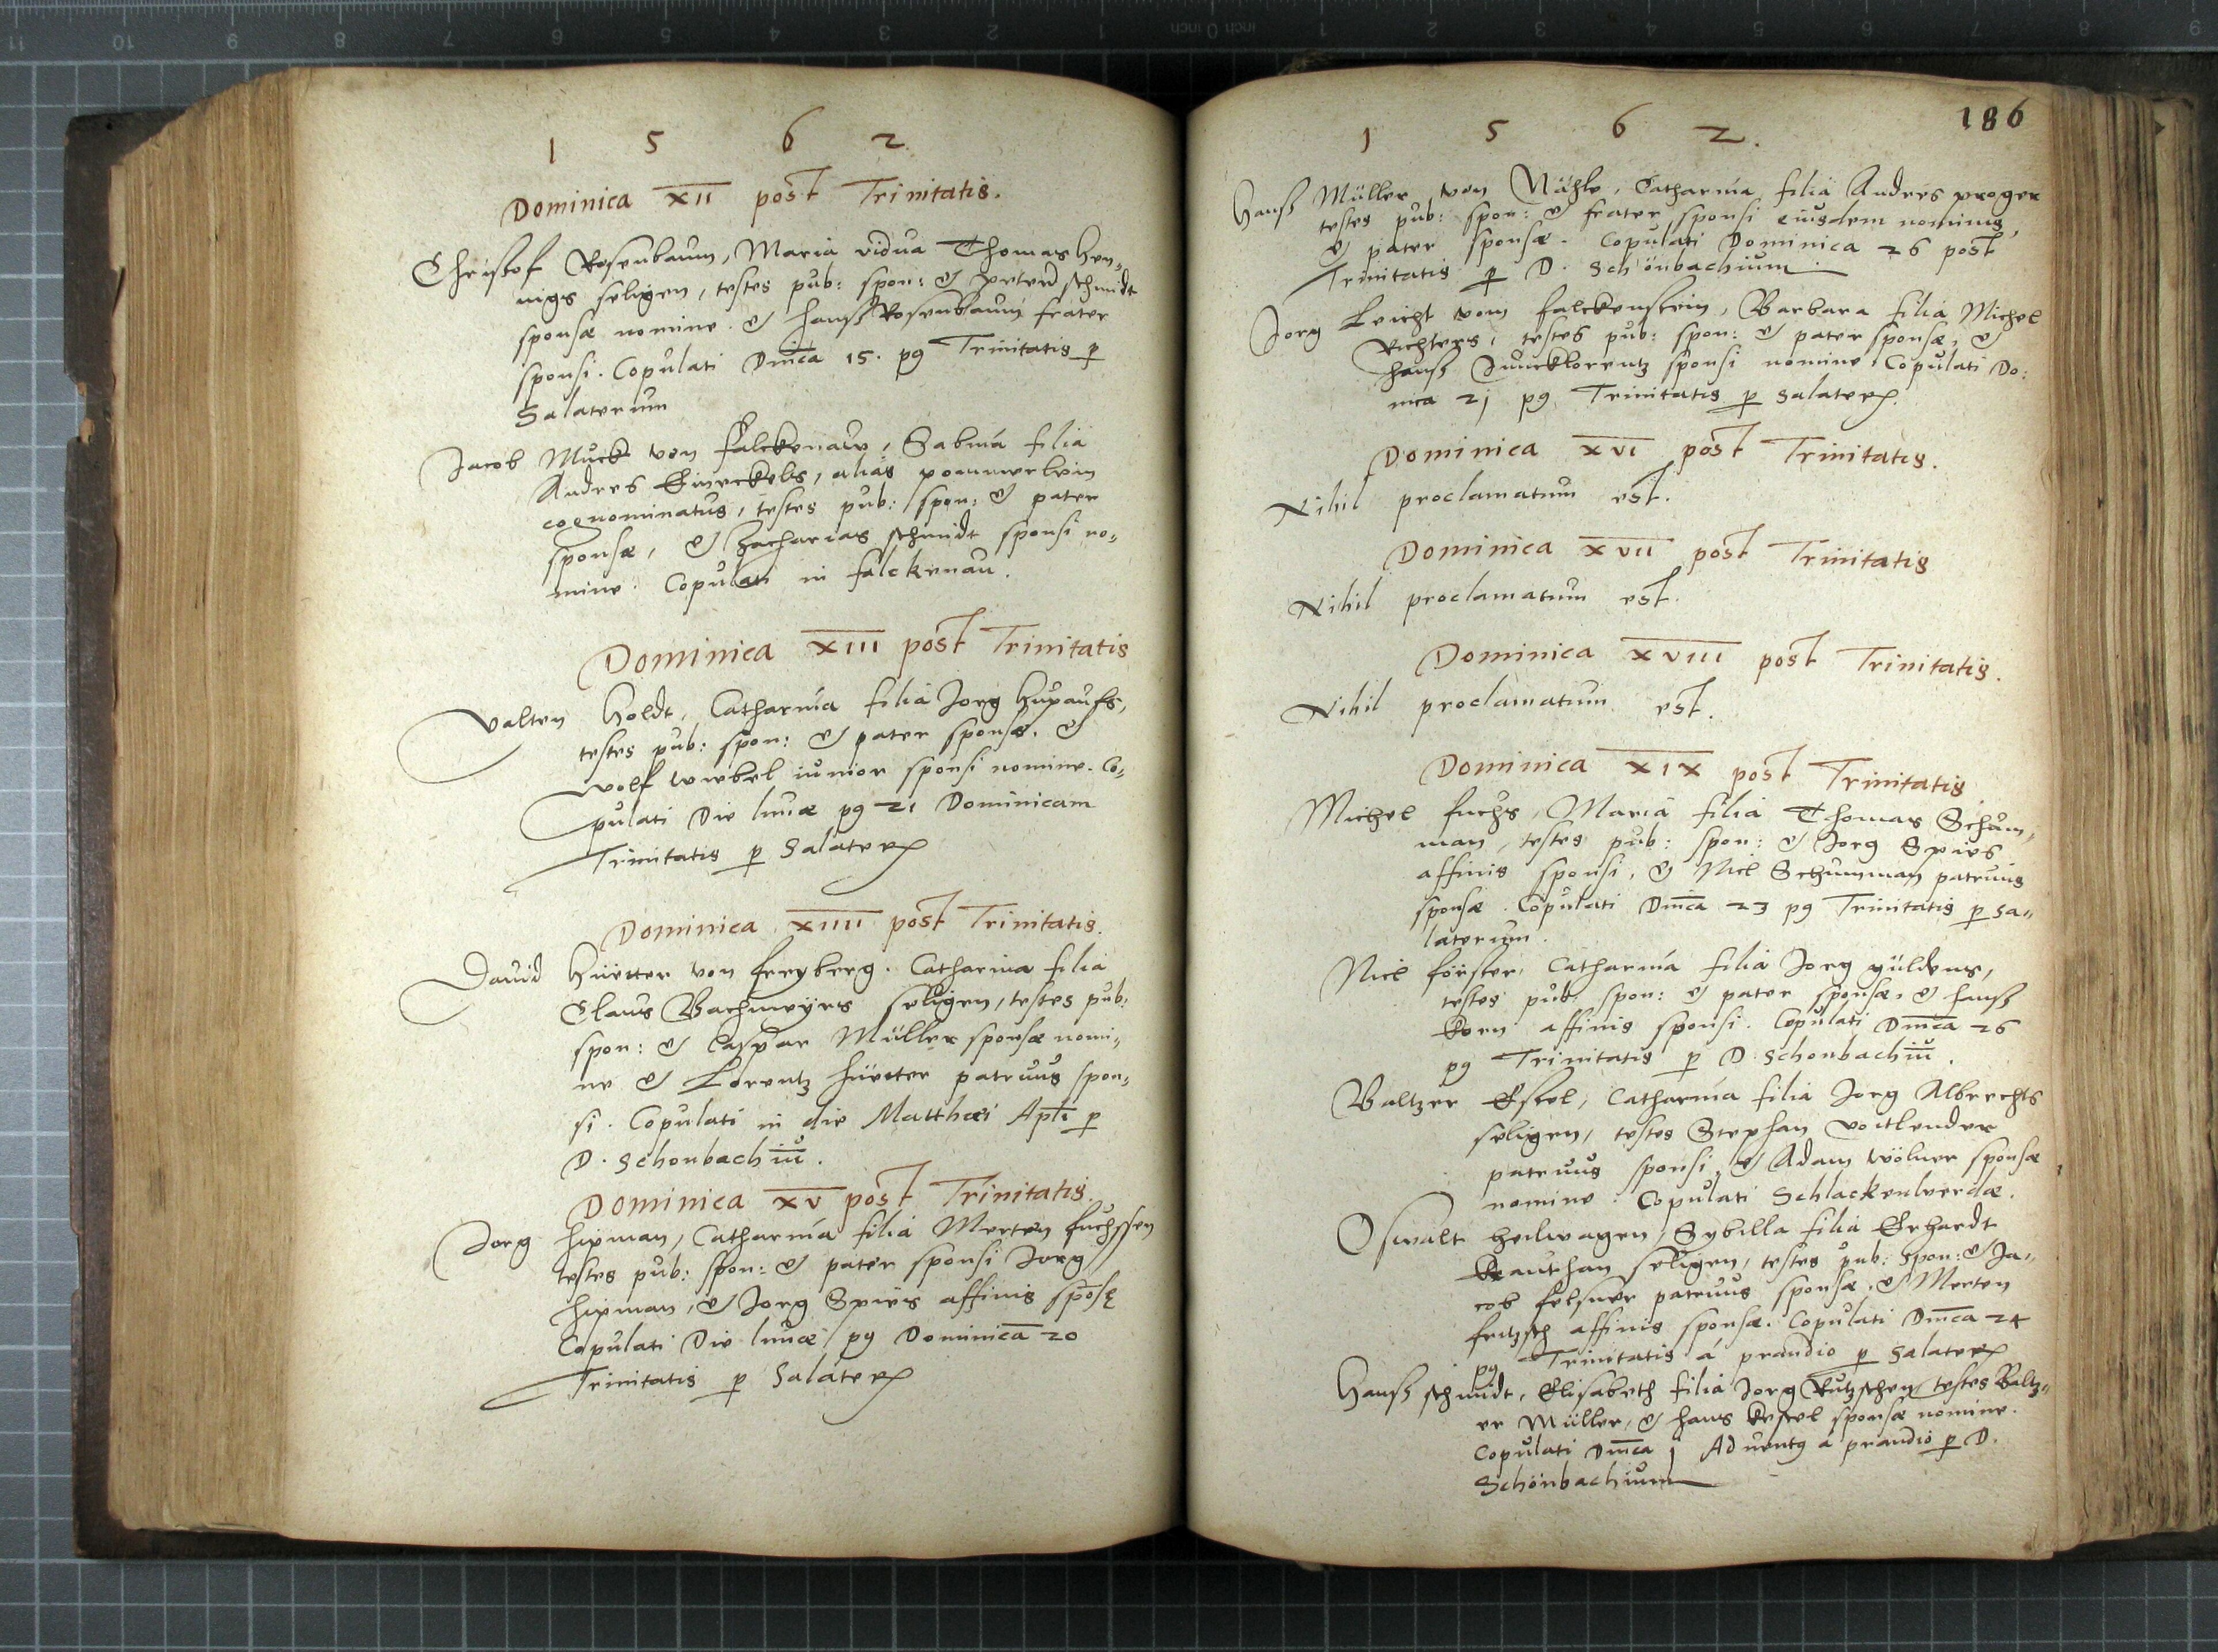 1 5 6 2
Dominica XII post Trinitatis.
Christof Rosenbaum, Maria vidua Thomas Hen-
nigs seligen, testes pub: spon: & Peter schmidt
sponsæ nomine. & Hanß Rosenbaum frater
sponsi. Copulati Dnica 15. pg Trinitatis p
Salaterum
Jacob Muck von Falckenaw, Sabina filia
Andres, alias pommerlein
cognominatus, testes pub: spon: & pater
sponsæ, & Zacharias schmidt sponsi no-
mine. Copulati in falckenau.
Dominica XIII post Trinitatis
Valten Holdt, Catharina filia Jorg Hupaufs,
testes pub: spon: & pater sponsæ. &
Wolf Wiebel iunior sponsi nomine. Co-
pulati Die lunæ pg 21 Dominicam
Trinitatis p Salater
Dominica XIIII post Trinitatis.
Dauid Hüetter von freyberg. Catharina filia
Claus Bachmeyrs seligen, testes pub:
spon: & Caspar Müller sponsæ nomi-
ne & Lorentz Hüetter patruus spon-
si. Copulati in die Matthæi Apli p
D. Schonbachiu.
Dominica XV post Trinitatis.
Jorg hipman, Catharina filia Merten fuchssen
testes pub: spon: & pater sponsi Jorg
hipman, & Jorg Spies affinis sposę
Copulati Die lunæ pg Dominica 20
Trinitatis p Salater
1 5 6 2.
186
Hanß Müller von, Catharina filia Andres proger
testes pub: spon: & frater sponsi eiusdem nominis,
& pater sponsæ. Copulati Dominica 26 post
Trinitatis p D. Schönbachium.
Jorg Leicht vom falckenstein, Barbara filia Michel
Richters, testes pub: spon: & pater sponsæ, &
Hanß Juncklorentz sponsi nomine. Copulati Do:
nica 21 pg Trinitatis p Salater.
Dominica XVI post Trinitatis.
Nihil proclamatum est.
Dominica XVII post Trinitatis
Nihil proclamatum est.
Dominica XVIII post Trinitatis.
Nihil proclamatum est.
Dominica XIX post Trinitatis
Michel fuchs, Maria filia Thomas Schum-
man, testes pub: spon: & Jorg Spies
affinis sponsi, & Nicl Schumman patruus
sponsæ. Copulati Dnica 23 pg Trinitatis p Sa-
laterium.
Nicl förster, Catharina filia Jorg güldens,
testes pub: spon: & pater sponsæ, & hanß
Korn affinis sponsi. Copulati Dnica 26
pg Trinitatis p D. Schonbachiu.
Baltzer, Catharina filia Jorg Albrechts
seligen, testes Stephan voitlender
patruus sponsi, & Adam Wölner sponsæ
nomine. Copulati Schlackenwerdæ.
Oswalt heilwagen, Sybilla filia Erhardt
Krauthan seligen, testes pub: spon: & Ja-
cob felsner patruus sponsæ, & Merten
fritzsch affinis sponsæ. Copulati Dnica 24
pg Trinitatis á prandio p Salater
Hanß schmidt, Elisabeth filia Jorg testes Baltz-
er Müller, & hans Kessel sponsæ nomine.
Copulati Dnica 1 Aduentg á prandio p D.
Schönbachium